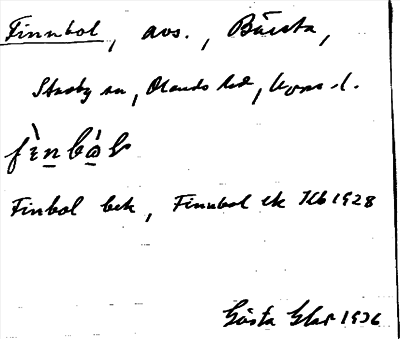 Finnbol, avs., Bärsta,
Stavby sn, Olands hd, Upps. l.
Finbol bek, Finnbol ek Kb 1928
Gösta 1936